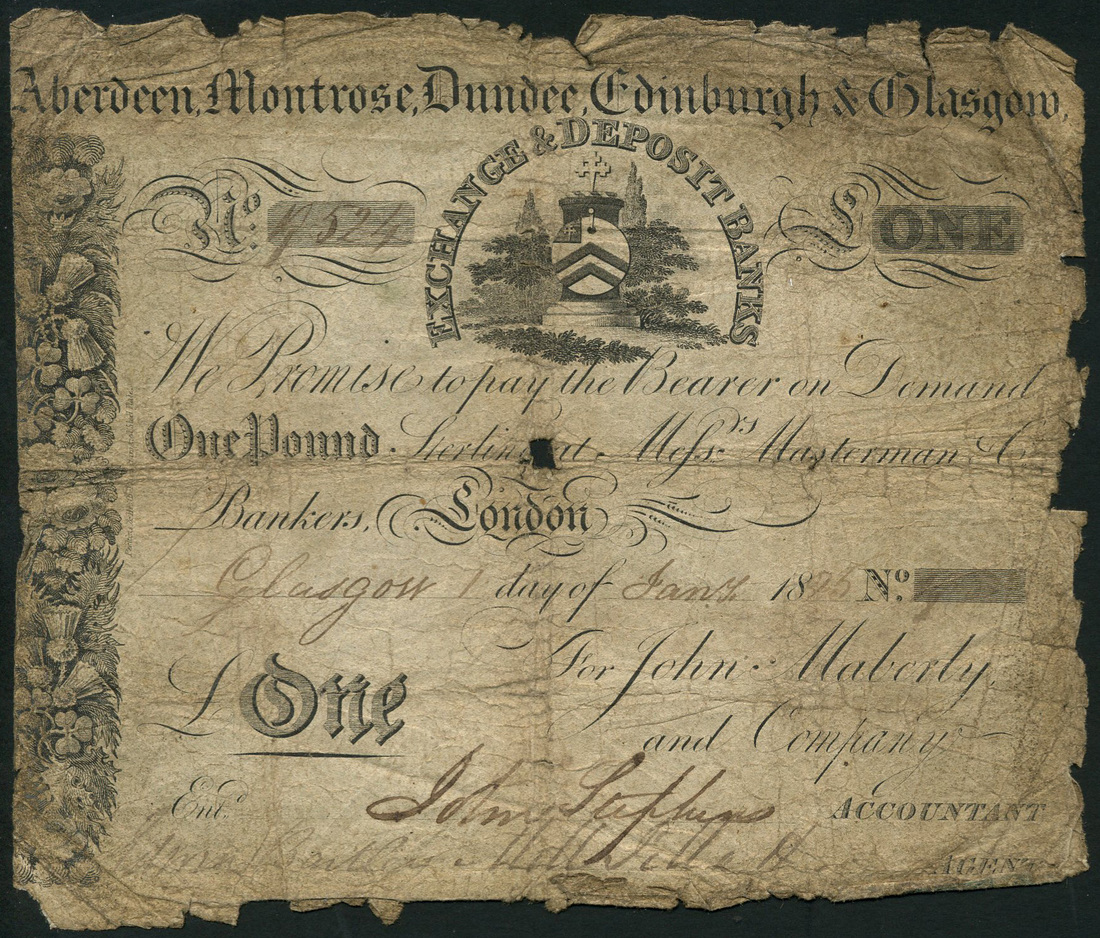 Aberdeen, Montrose, Dundee, Edinburgh & Glasgow,
EXCHANGE & DEPOSIT BANKS
No. 9524
£ ONE
We Promise to pay the Bearer on Demand
One Pound Sterling at Messrs Masterman & Co
Bankers, London
Glasgow 1 day of Jany 1825 No.
For John Maberly,
and Company
£ One
Entd.
John Stephens
ACCOUNTANT
AGENT